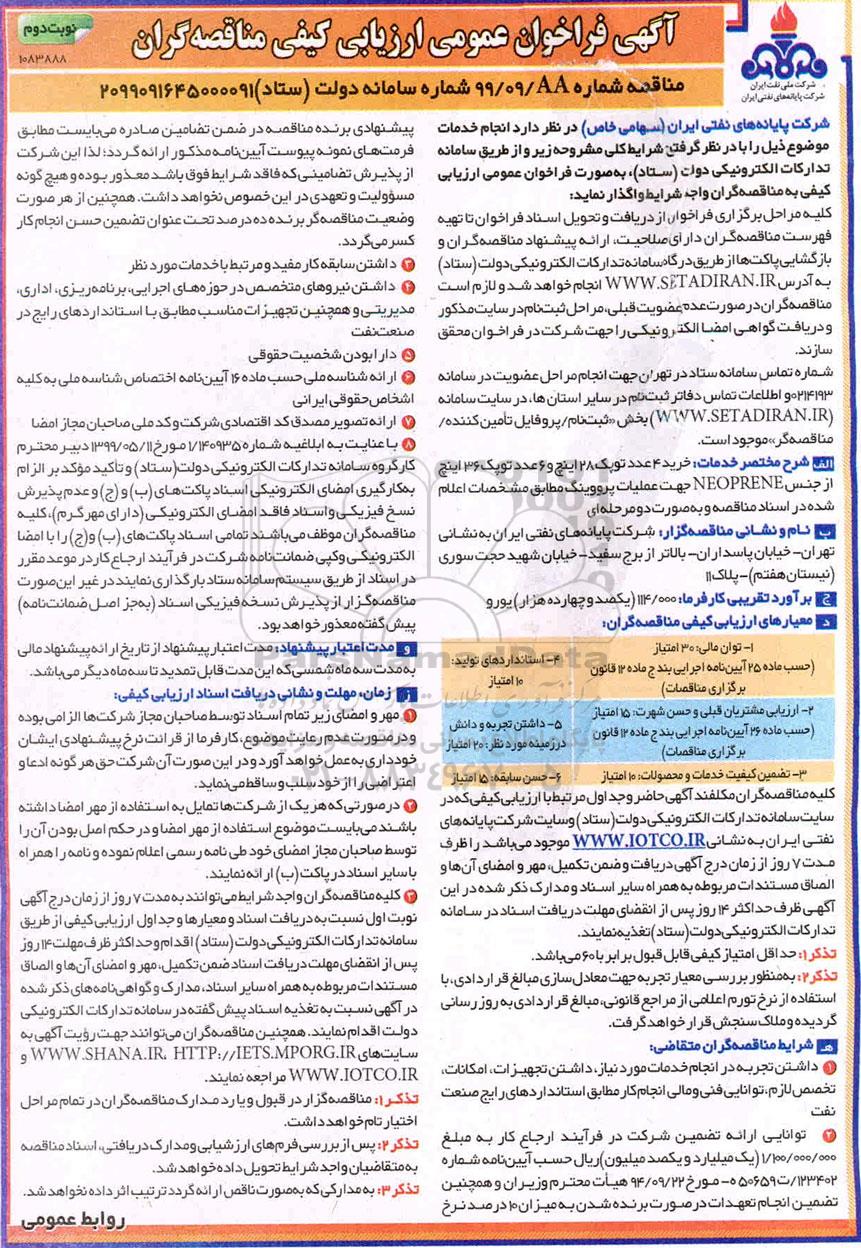 نوبت دوم
۱۰۸۳۸۸۸
آگهی فراخوان عمومی ارزیابی کیفی مناقصه‌گران
شرکت ملی نفت ایران
شرکت پایانه‌های نفتی ایران
مناقصه شماره ۹۹/۰۹/AA شماره سامانه دولت (ستاد) ۲۰۹۹۰۹۱۶۴۵۰۰۰۰۹۱
شرکت پایانه‌های نفتی ایران (سهامی خاص) در نظر دارد انجام خدمات
موضوع ذیل را با در نظر گرفتن شرایط کلی مشروحه زیر و از طریق سامانه
تدارکات الکترونیکی دولت (ستاد)، به‌صورت فراخوان عمومی ارزیابی
کیفی به مناقصه‌گران واجد شرایط واگذار نماید:
کلیه مراحل برگزاری فراخوان از دریافت و تحویل اسناد فراخوان تا تهیه
فهرست مناقصه‌گران دارای صلاحیت، ارائه پیشنهاد مناقصه‌گران و
بازگشایی پاکت‌ها از طریق درگاه سامانه تدارکات الکترونیکی دولت (ستاد)
به آدرس WWW.SETADIRAN.IR انجام خواهد شد و لازم است
مناقصه‌گران در صورت عدم عضویت قبلی، مراحل ثبت‌نام در سایت مذکور
و دریافت گواهی امضا الکترونیکی را جهت شرکت در فراخوان محقق
سازند.
شماره تماس سامانه ستاد در تهران جهت انجام مراحل عضویت در سامانه
۰۲۱۴۱۹۳ و اطلاعات تماس دفاتر ثبت‌نام در سایر استان ها، در سایت سامانه
(WWW.SETADIRAN.IR) بخش «ثبت‌نام/پروفایل تأمین کننده/
مناقصه‌گر» موجود است.
الف شرح مختصر خدمات: خرید ۴ عدد توپک ۲۸ اینچ و ۶ عدد توپک ۳۶ اینچ
از جنس NEOPRENE جهت عملیات پرووینگ مطابق مشخصات اعلام
شده در اسناد مناقصه و به‌صورت دو مرحله‌ای
ب نام و نشانی مناقصه‌گزار: شرکت پایانه‌های نفتی ایران به نشانی
تهران- خیابان پاسداران- بالاتر از برج سفید- خیابان شهید حجت سوری
(نیستان هفتم)- پلاک ۱۱
ج برآورد تقریبی کارفرما: ۱۱۴/۰۰۰ (یکصد و چهارده هزار) یورو
د معیارهای ارزیابی کیفی مناقصه‌گران:
۱- توان مالی: ۳۰ امتیاز
(حسب ماده ۲۵ آیین‌نامه اجرایی بند ج ماده ۱۲ قانون
برگزاری مناقصات)
۴- استانداردهای تولید:
۱۰ امتیاز
۲- ارزیابی مشتریان قبلی و حسن شهرت: ۱۵ امتیاز
(حسب ماده ۲۶ آیین‌نامه اجرایی بند ج ماده ۱۲ قانون
برگزاری مناقصات)
۵- داشتن تجربه و دانش
در زمینه مورد نظر: ۲۰ امتیاز
۳- تضمین کیفیت خدمات و محصولات: ۱۰ امتیاز
۶- حسن سابقه: ۱۵ امتیاز
کلیه مناقصه‌گران مکلفند آگهی حاضر و جداول مرتبط با ارزیابی کیفی که در
سایت سامانه تدارکات الکترونیکی دولت (ستاد) و سایت شرکت پایانه‌های
نفتی ایران به نشانی WWW.IOTCO.IR موجود می‌باشد را ظرف
مدت ۷ روز از زمان درج آگهی دریافت و ضمن تکمیل، مهر و امضای آن‌ها و
الصاق مستندات مربوطه به همراه سایر اسناد و مدارک ذکر شده در این
آگهی ظرف حداکثر ۱۴ روز پس از انقضای مهلت دریافت اسناد در سامانه
تدارکات الکترونیکی دولت (ستاد) تغذیه نمایند.
تذکر ۱: حداقل امتیاز کیفی قابل قبول برابر با ۶۰ می‌باشد.
تذکر ۲: به‌منظور بررسی معیار تجربه جهت معادل‌سازی مبالغ قراردادی، با
استفاده از نرخ تورم اعلامی از مراجع قانونی، مبالغ قراردادی به روز رسانی
گردیده و ملاک سنجش قرار خواهد گرفت.
هـ شرایط مناقصه‌گران متقاضی:
۱ داشتن تجربه در انجام خدمات مورد نیاز، داشتن تجهیزات، امکانات،
تخصص لازم، توانایی فنی و مالی انجام کار مطابق استانداردهای رایج صنعت
نفت
۲ توانایی ارائه تضمین شرکت در فرآیند ارجاع کار به مبلغ
۱/۱۰۰/۰۰۰/۰۰۰ (یک میلیارد و یکصد میلیون) ریال حسب آیین‌نامه شماره
۱۲۳۴۰۲/ت۵۰۶۵۹ه- مورخ ۹۴/۰۹/۲۲ هیأت محترم وزیران و همچنین
تضمین انجام تعهدات در صورت برنده شدن به میزان ۱۰ درصد نرخ
پیشنهادی برنده مناقصه در ضمن تضامین صادره می‌بایست مطابق
فرمت‌های نمونه پیوست آیین‌نامه مذکور ارائه گردد؛ لذا این شرکت
از پذیرش تضامینی که فاقد شرایط فوق باشد معذور بوده و هیچ گونه
مسؤولیت و تعهدی در این خصوص نخواهد داشت. همچنین از هر صورت
وضعیت مناقصه‌گر برنده ده درصد تحت عنوان تضمین حسن انجام کار
کسر می‌گردد.
۳ داشتن سابقه کار مفید و مرتبط با خدمات مورد نظر
۴ داشتن نیروهای متخصص در حوزه‌های اجرایی، برنامه‌ریزی، اداری،
مدیریتی و همچنین تجهیزات مناسب مطابق با استانداردهای رایج در
صنعت نفت
۵ دارا بودن شخصیت حقوقی
۶ ارائه شناسه ملی حسب ماده ۱۶ آیین‌نامه اختصاص شناسه ملی به کلیه
اشخاص حقوقی ایرانی
۷ ارائه تصویر مصدق کد اقتصادی شرکت و کد ملی صاحبان مجاز امضا
۸ با عنایت به ابلاغیه شماره ۱/۱۴۰۹۳۵ مورخ ۱۳۹۹/۰۵/۱۱ دبیر محترم
کارگروه سامانه تدارکات الکترونیکی دولت (ستاد) و تأکید مؤکد بر الزام
به‌کارگیری امضای الکترونیکی اسناد پاکت‌های (ب) و (ج) و عدم پذیرش
نسخ فیزیکی و اسناد فاقد امضای الکترونیکی (دارای مهر گرم)، کلیه
مناقصه‌گران موظف می‌باشند تمامی اسناد پاکت‌های (ب) و (ج) را با امضا
الکترونیکی و کپی ضمانت‌نامه شرکت در فرآیند ارجاع کار در موعد مقرر
در اسناد از طریق سیستم سامانه ستاد بارگذاری نمایند در غیر این صورت
مناقصه‌گزار از پذیرش نسخه فیزیکی اسناد (به‌جز اصل ضمانت‌نامه)
پیش گفته معذور خواهد بود.
و مدت اعتبار پیشنهاد: مدت اعتبار پیشنهاد از تاریخ ارائه پیشنهاد مالی
به مدت سه ماه شمسی که این مدت قابل تمدید تا سه ماه دیگر می‌باشد.
ز زمان، مهلت و نشانی دریافت اسناد ارزیابی کیفی:
۱ مهر و امضای زیر تمام اسناد توسط صاحبان مجاز شرکت‌ها الزامی بوده
و در صورت عدم رعایت موضوع، کارفرما از قرائت نرخ پیشنهادی ایشان
خودداری به عمل خواهد آورد و در این صورت آن شرکت حق هر گونه ادعا و
اعتراضی را از خود سلب و ساقط می‌نماید.
۲ در صورتی که هر یک از شرکت‌ها تمایل به استفاده از مهر امضا داشته
باشند می‌بایست موضوع استفاده از مهر امضا و در حکم اصل بودن آن را
توسط صاحبان مجاز امضای خود طی نامه رسمی اعلام نموده و نامه را همراه
با سایر اسناد در پاکت (ب) ارائه نمایند.
۳ کلیه مناقصه‌گران واجد شرایط می‌توانند به مدت ۷ روز از زمان درج آگهی
نوبت اول نسبت به دریافت اسناد و معیارها و جداول ارزیابی کیفی از طریق
سامانه تدارکات الکترونیکی دولت (ستاد) اقدام و حداکثر ظرف مهلت ۱۴ روز
پس از انقضای مهلت دریافت اسناد ضمن تکمیل، مهر و امضای آن‌ها و الصاق
مستندات مربوطه به همراه سایر اسناد، مدارک و گواهی‌نامه‌های ذکر شده
در آگهی نسبت به تغذیه اسناد پیش گفته در سامانه تدارکات الکترونیکی
دولت اقدام نمایند. همچنین مناقصه‌گران می‌توانند جهت رؤیت آگهی به
سایت‌های WWW.SHANA.IR، HTTP://IETS.MPORG.IR و
WWW.IOTCO.IR مراجعه نمایند.
تذکر ۱: مناقصه‌گزار در قبول و یا رد مدارک مناقصه‌گران در تمام مراحل
اختیار تام خواهد داشت.
تذکر ۲: پس از بررسی فرم‌های ارزشیابی و مدارک دریافتی، اسناد مناقصه
به متقاضیان واجد شرایط تحویل داده خواهد شد.
تذکر ۳: به مدارکی که به‌صورت ناقص ارائه گردد ترتیب اثر داده نخواهد شد.
روابط عمومی
ParsNamadData